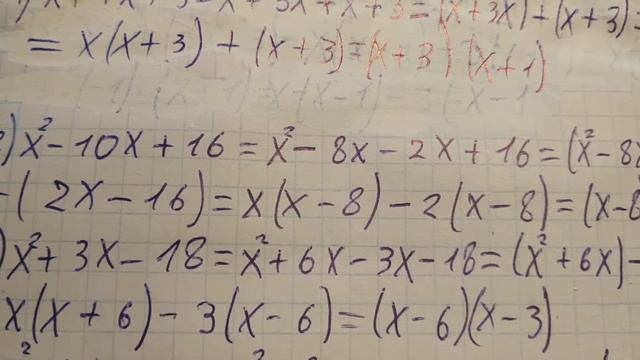 3 = (x + 3x) + (x + 3)
= x(x + 3) + (x + 3) = (x + 3)(x + 1)
)x² - 10x + 16 = x² - 8x - 2x + 16 = (x² - 8x
-(2x - 16) = x(x - 8) - 2(x - 8) = (x - 8
)x² + 3x - 18 = x² + 6x - 3x - 18 = (x² + 6x) -
x(x + 6) - 3(x - 6) = (x - 6)(x - 3)